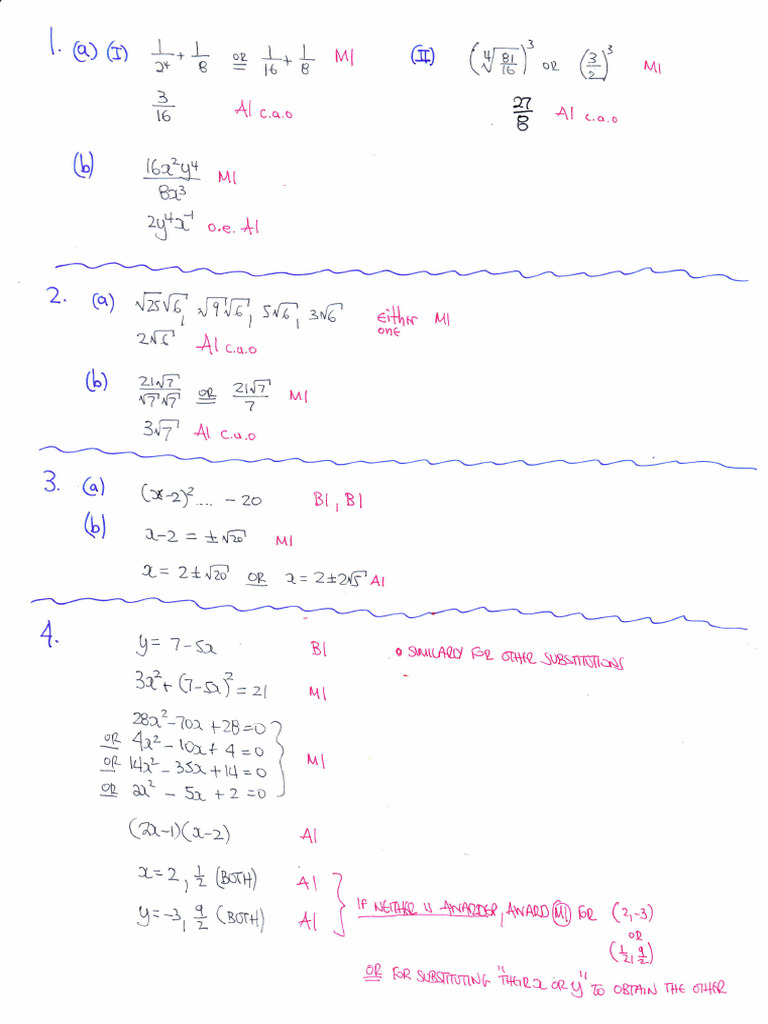 1. (a) (I) 1/2⁴ + 1/8 OR 1/16 + 1/8 M1 (II) (⁴√(81/16))³ OR (3/2)³ M1
3/16 A1 c.a.o 27/8 A1 c.a.o
(b) 16x²y⁴/8x³ M1
2y⁴x⁻¹ o.e. A1
2. (a) √25√6, √9√6, 5√6, 3√6 EITHER ONE M1
2√6 A1 c.a.o
(b) 21√7/√7√7 OR 21√7/7 M1
3√7 A1 c.a.o
3. (a) (x-2)² .... - 20 B1, B1
(b) x-2 = ±√20 M1
x = 2±√20 OR x = 2±2√5 A1
4. y = 7-5x B1 • SIMILARLY FOR OTHER SUBSTITUTIONS
3x² + (7-5x)² = 21 M1
28x² - 70x + 28 = 0
OR 4x² - 10x + 4 = 0
OR 14x² - 35x + 14 = 0 M1
OR 2x² - 5x + 2 = 0
(2x-1)(x-2) A1
x = 2, 1/2 (BOTH) A1
y = -3, 9/2 (BOTH) A1
IF NEITHER IS AWARDED, AWARD M1 FOR (2,-3)
OR
(1/2, 9/2)
OR FOR SUBSTITUTING "THEIR x OR y" TO OBTAIN THE OTHER